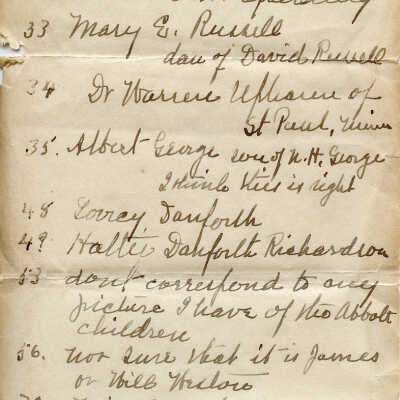 33 Mary E. Russell
dau of David Russell
34 Dr Warren Upham of
St Paul, Minn
35. Albert George son of N. H. George
I think this is right
48 Lovey Danforth
49 Hattie Danforth Richardson
53 dont correspond to any
picture I have of the Abbott
children
56. not sure that it is James
or Will Weston